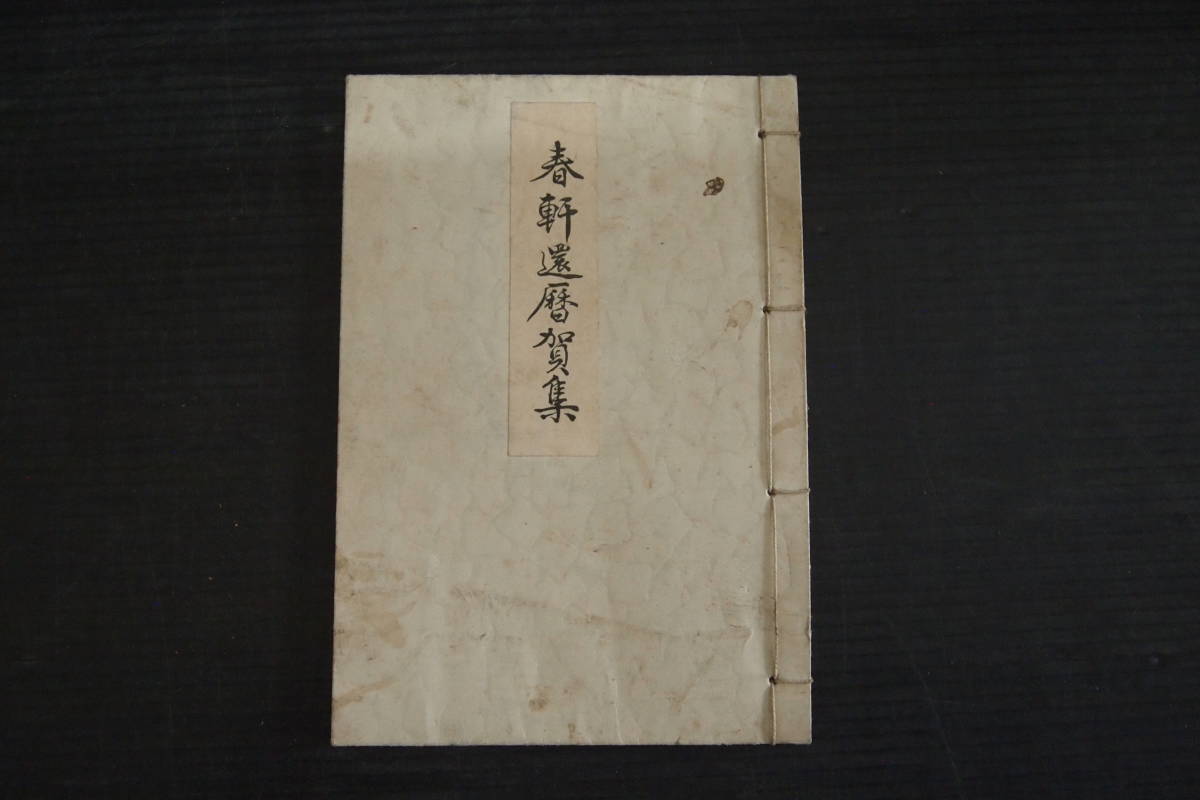 春軒還曆賀集